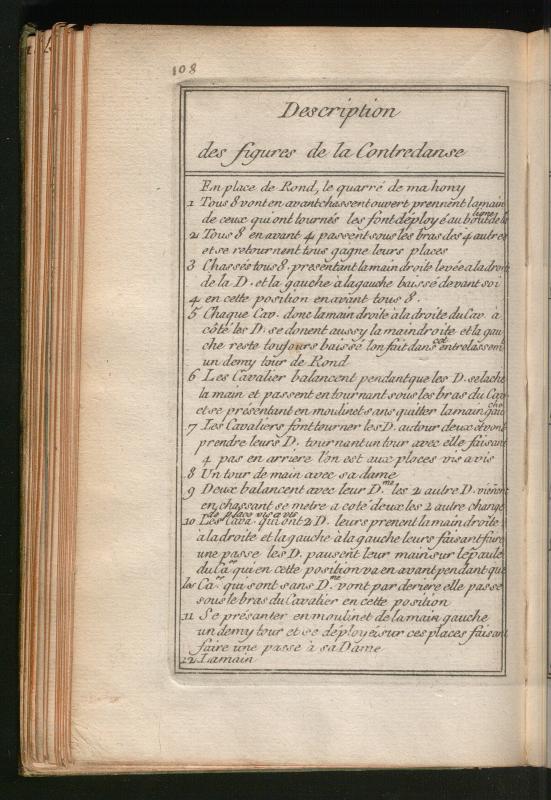 108
Description
des figures de la Contredanse
En place de Rond, le quarré de mahony
1 Tous 8 vont en avant chassent ouvert prennent la main
de ceux qui ont tournés les font déployé au bout de la
ligne
2 Tous 8 en avant 4 passent sous les bras des 4 autres
et se retournent tous gagne leurs places
3 Chassés tous 8. presentant la main droite levée a la droite
de la D. et la gauche à la gauche baissé devant soi
4 en cette position en avant tous 8.
5 Chaque Cav. donc la main droite à la droite du Cav. à
côté les D. se donent aussy la main droite et la gau
che reste toujours baissé l'on fait dans cet entrelassem
un demy tour de Rond
6 Les Cavalier balancent pendant que les D. se lache
la main et passent en tournant sous les bras du Cav
et se présentant en moulinet sans quitter la main gau
che
7 Les Cavaliers font tourner les D. autour deux et vont
prendre leurs D. tournant un tour avec elle faisant
4 pas en arriere l'on est aux places vis a vis
8 Un tour de main avec sa dame
9 Deux balancent avec leur D.me les 2 autre D. vienent
en chassant se metre a coté deux les 2 autre change
de place vis a vis
10 Les Cava. qui ont 2 D. leurs prenent la main droite
à la droite et la gauche à la gauche leurs faisant faire
une passe les D. pausent leur main sur lépaule
du Car. qui en cette position va en avant pendant que
les Car. qui sont sans D.me vont par deriere elle passe
sous le bras du Cavalier en cette position
11 Se présanter en moulinet de la main gauche
un demy tour et se déployé sur ces places faisant
faire une passe à sa Dame
12 La main